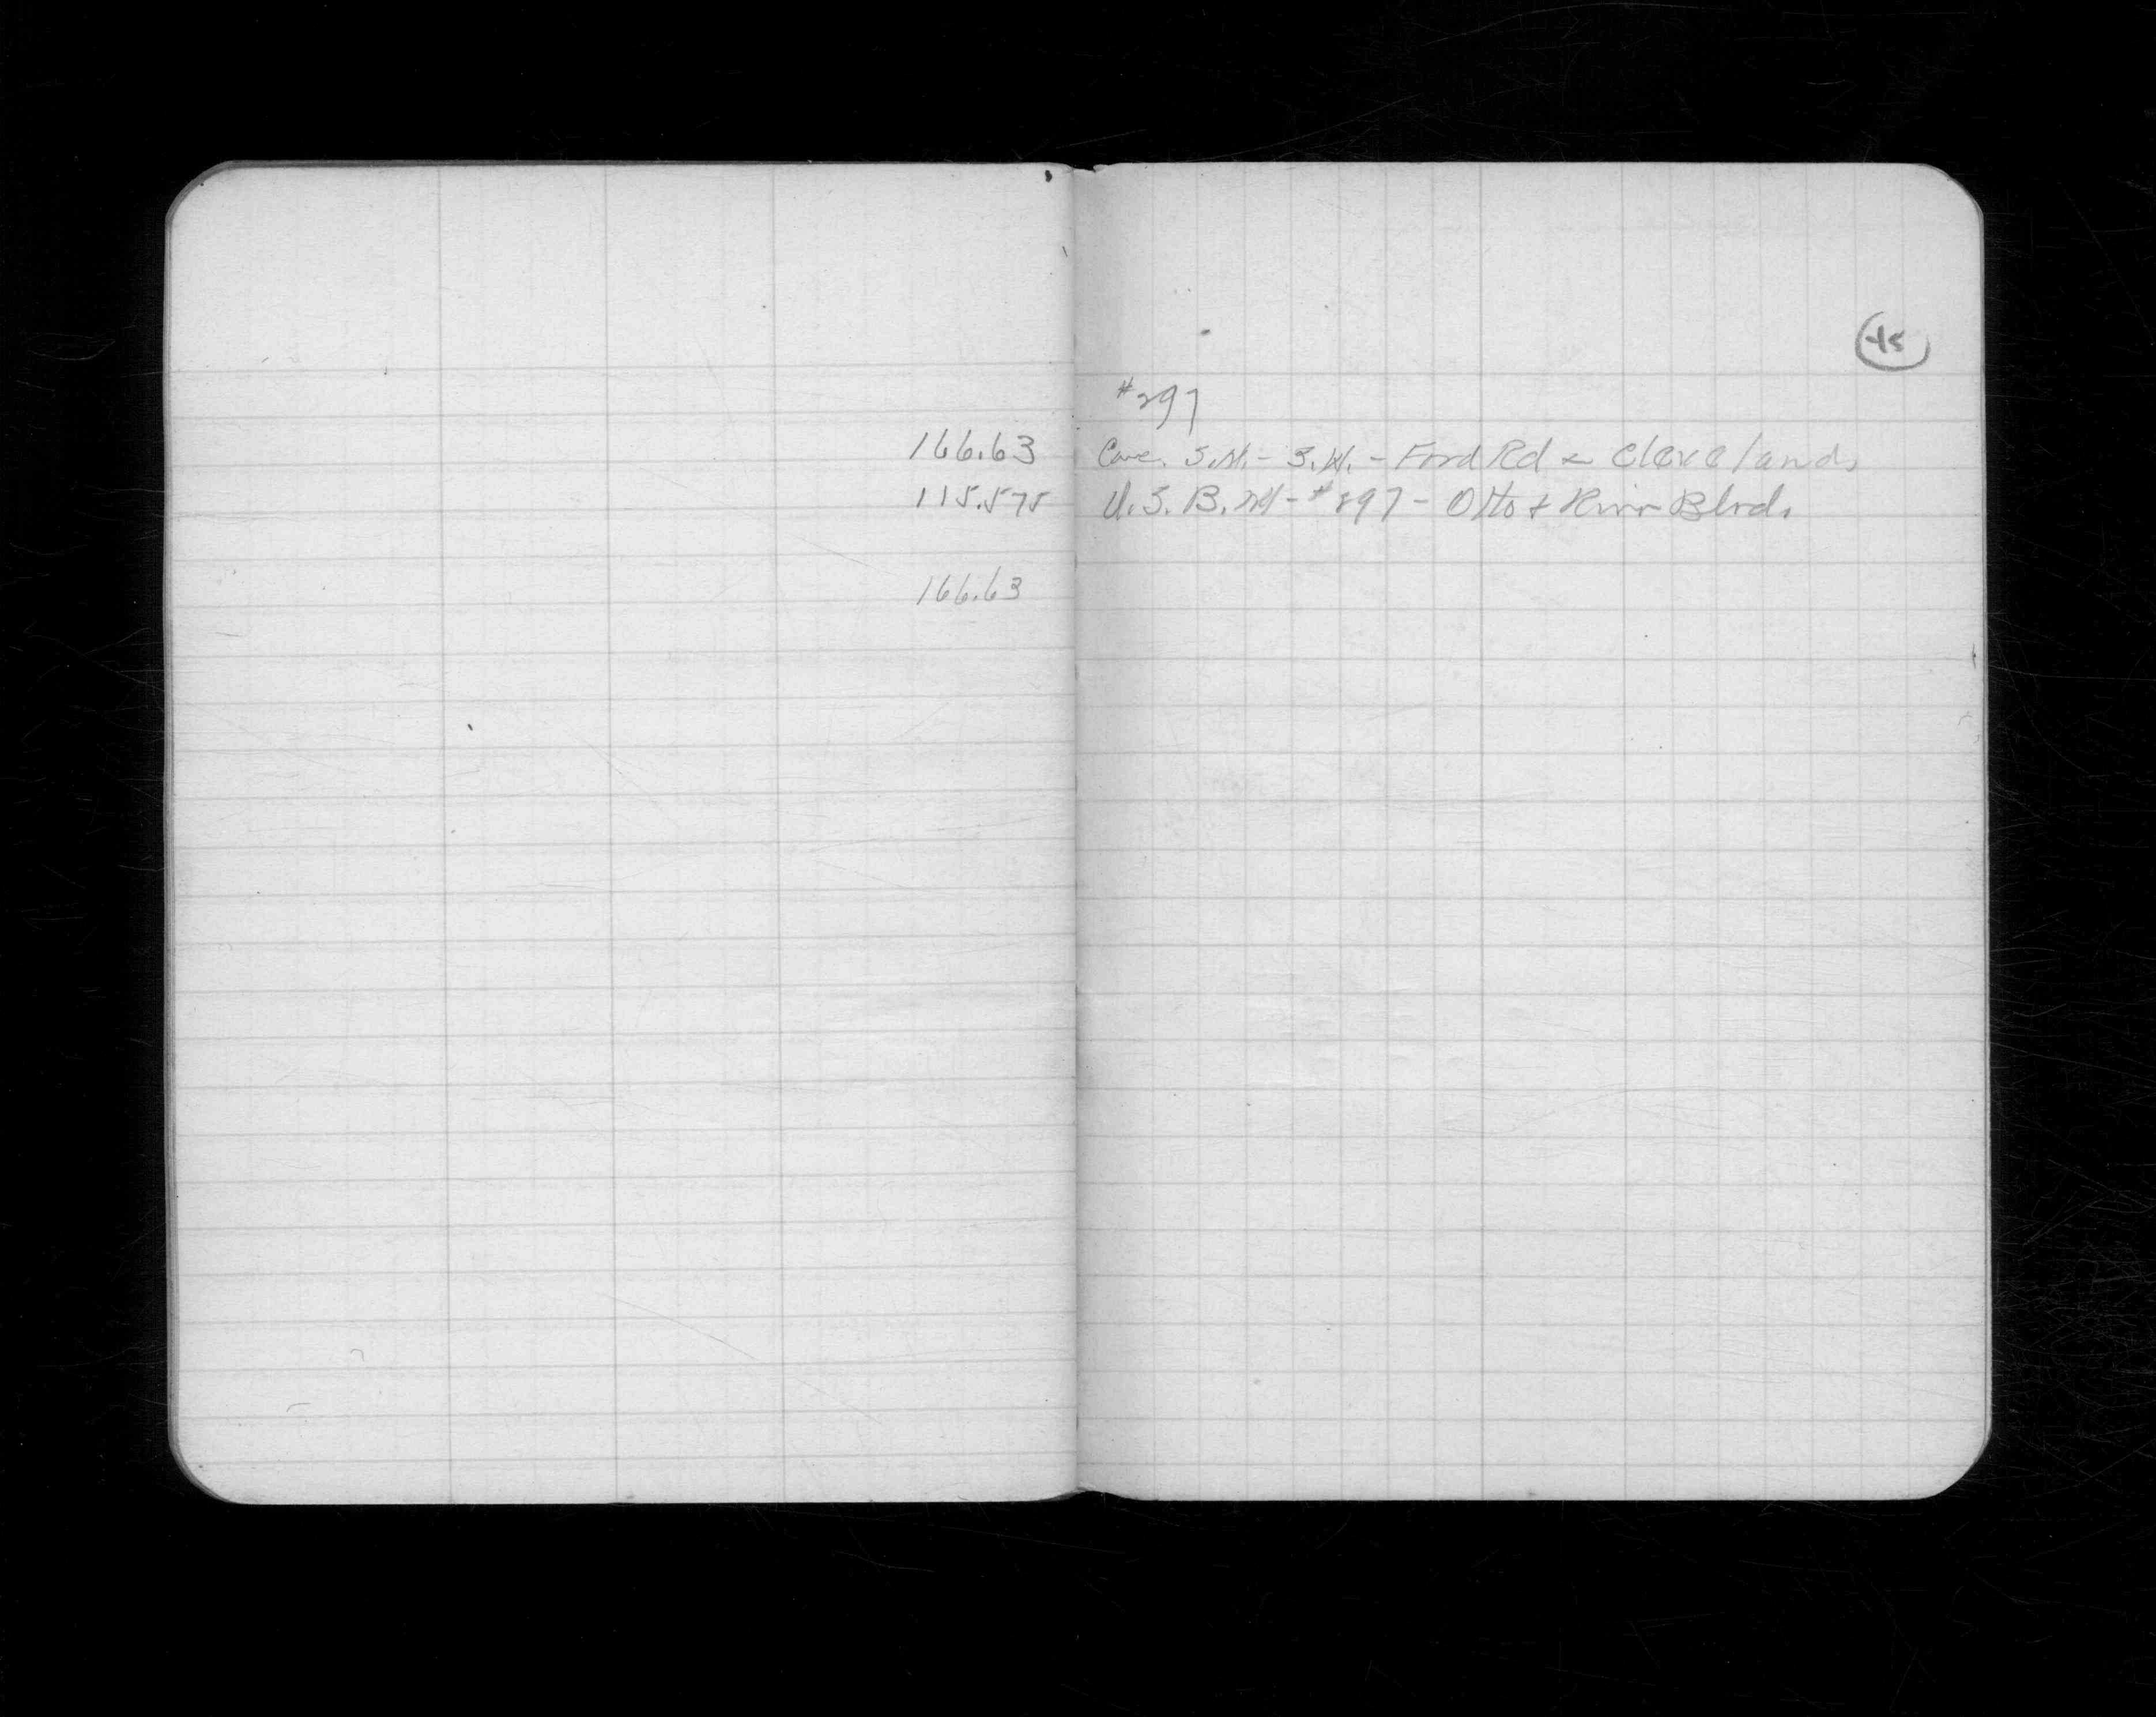 45
#297
166.63 S.W. - Ford Rd & Cleveland
115.575 U.S. B.M - #897 - Otto + River Blvds
166.63